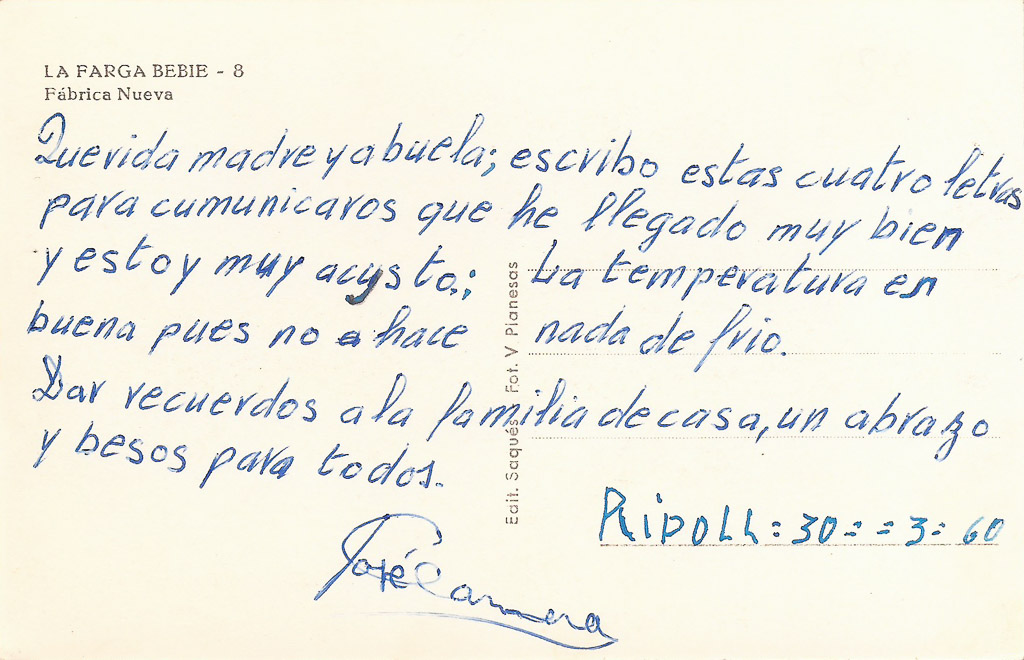 LA FARGA BEBIE - 8
Fábrica Nueva
Querida madre y abuela; escribo estas cuatro letras
para cumunicaros que he llegado muy bien
y estoy muy agusto.; La temperatura en
buena pues no hace nada de frio.
Dar recuerdos a la familia de casa, un abrazo
y besos para todos.
Edit. Saqués Fot. V Planesas
Ripoll = 30 = = 3 = 60
José